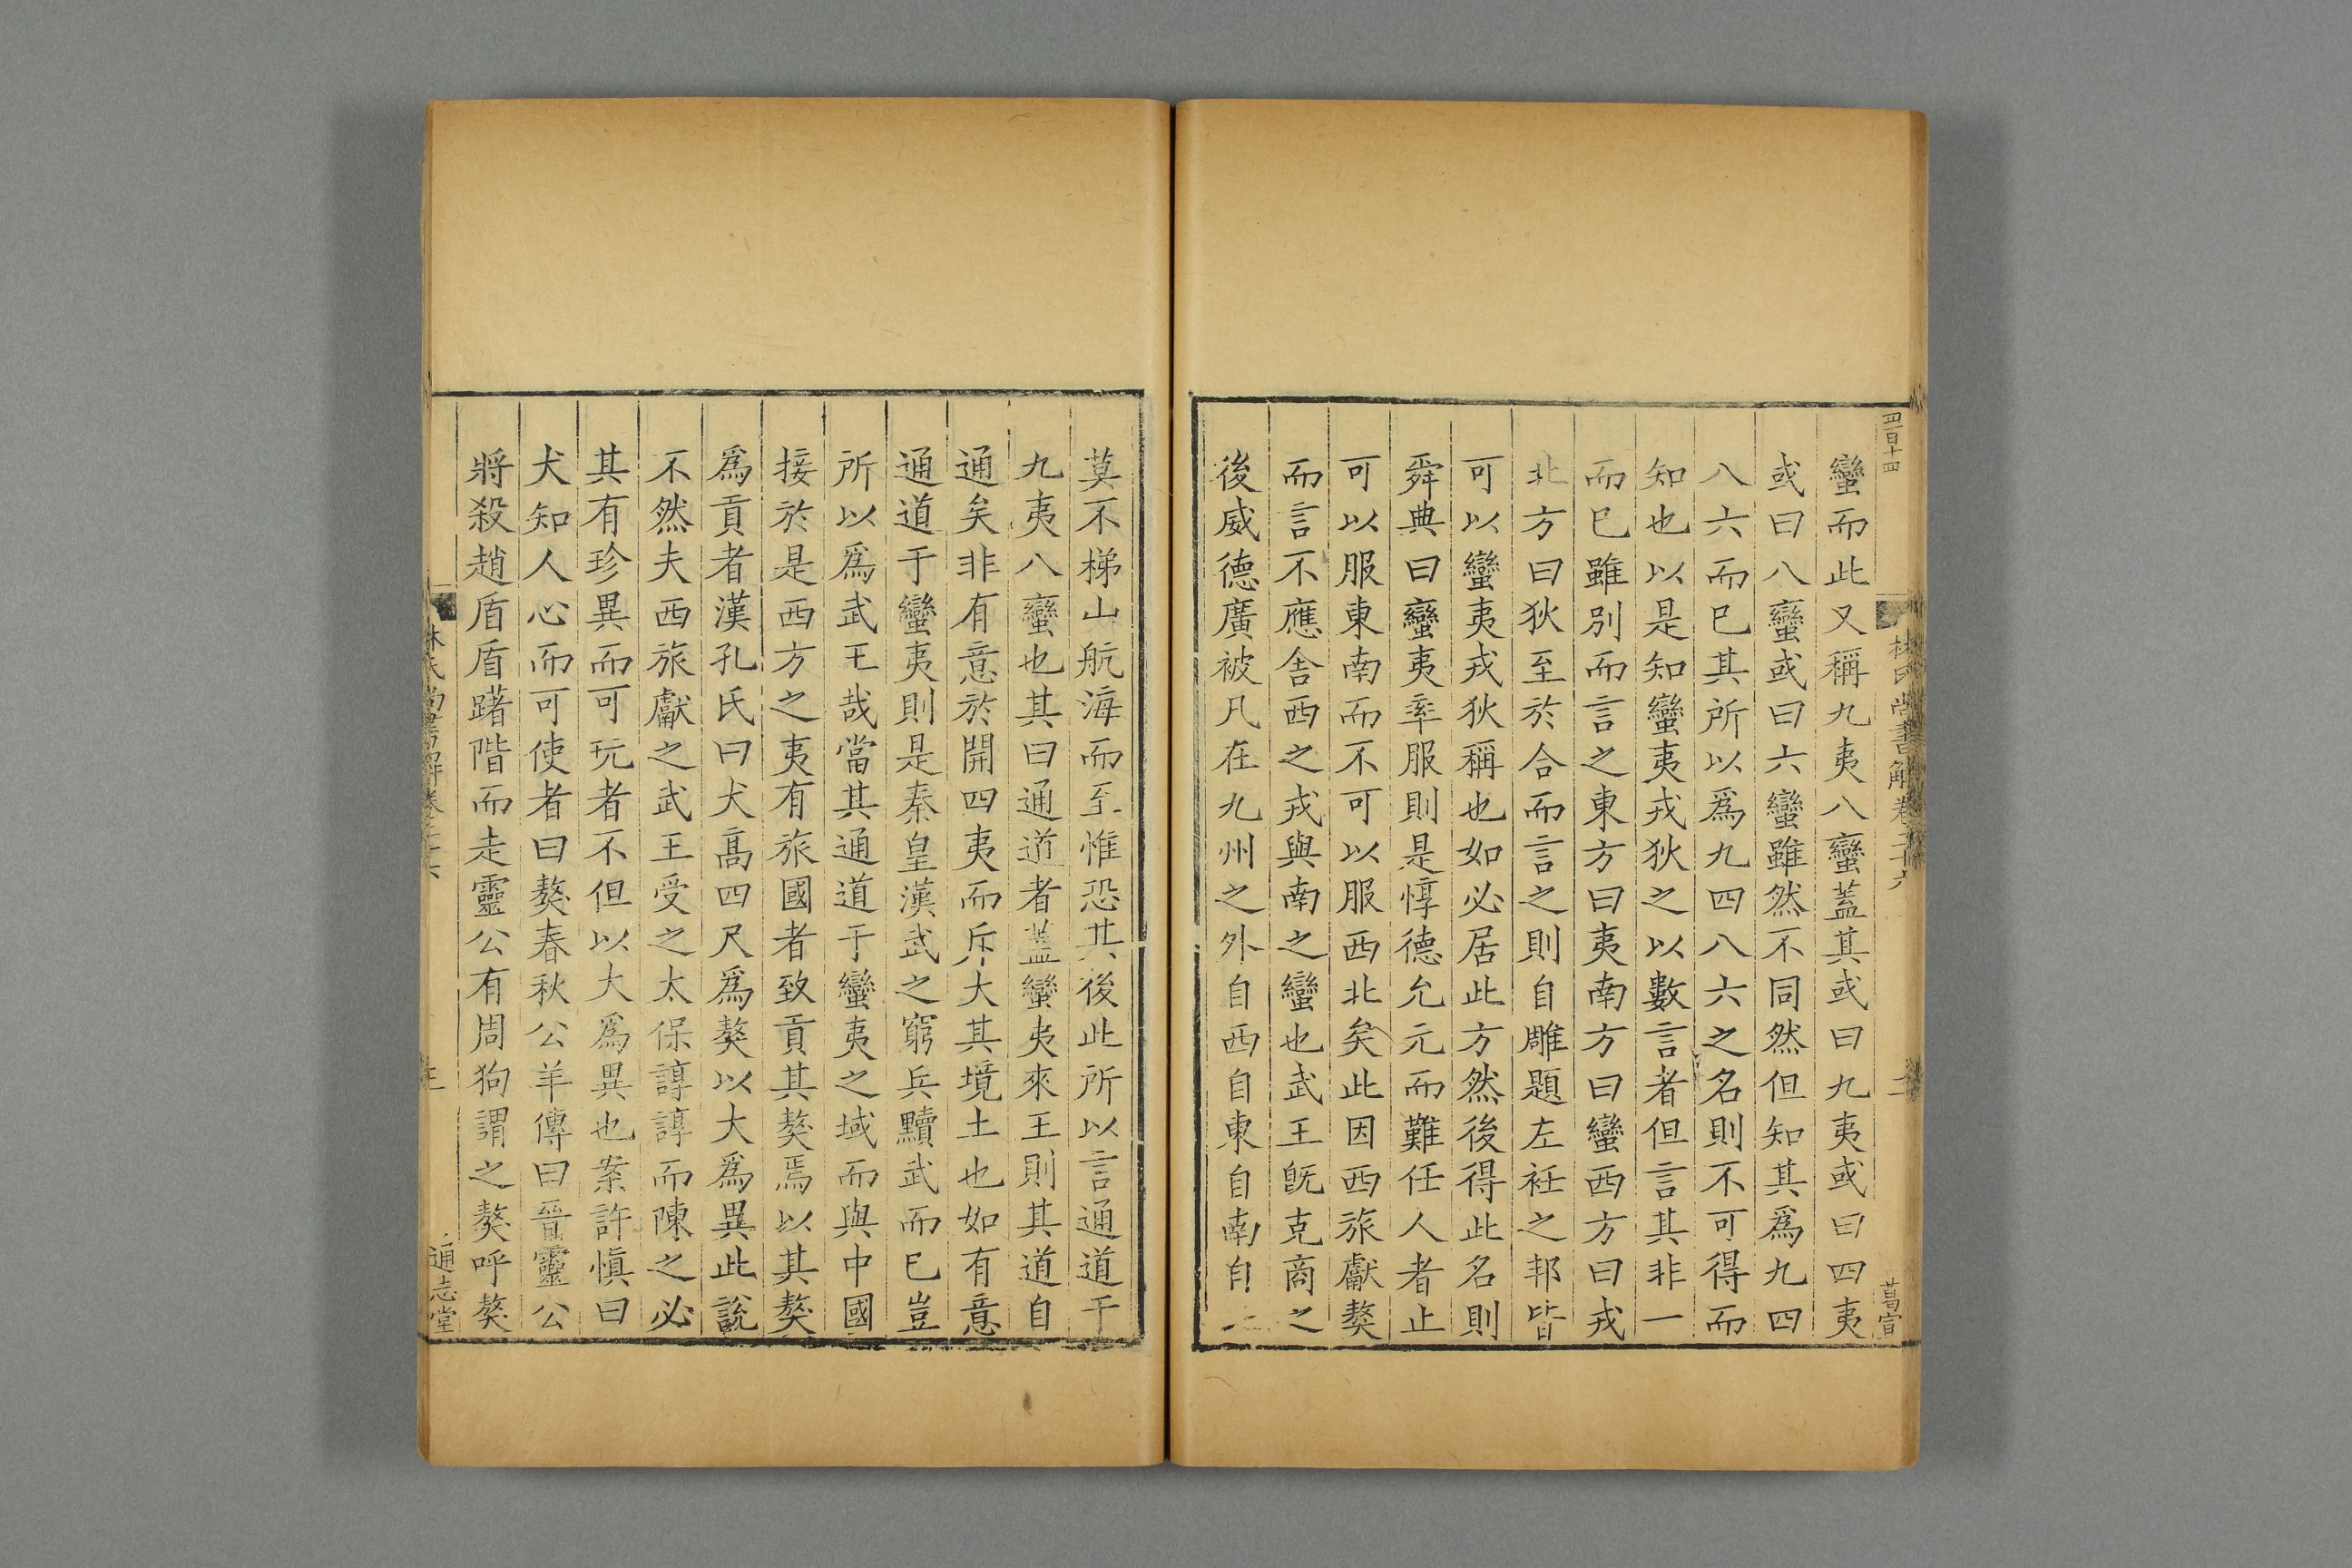 四百十四
林氏尚書解卷二十六
葛宣
蠻而此又稱九夷八蠻蓋其或曰九夷或曰四夷
或曰八蠻或曰六蠻雖然不同然但知其爲九四
八六而已其所以爲九四八六之名則不可得而
知也以是知蠻夷戎狄之以數言者但言其非一
而已雖別而言之東方曰夷南方曰蠻西方曰戎
北方曰狄至於合而言之則自雕題左衽之邦皆
可以蠻夷戎狄稱也如必居此方然後得此名則
舜典曰蠻夷率服則是惇德允元而難任人者止
可以服東南而不可以服西北矣此因西旅獻獒
而言不應舍西之戎與南之蠻也武王旣克商之
後威德廣被凡在九州之外自西自東自南自
莫不梯山航海而至惟恐其後此所以言通道于
九夷八蠻也其曰通道者蓋蠻夷來王則其道自
通矣非有意於開四夷而斥大其境土也如有意
通道于蠻夷則是秦皇漢武之窮兵黷武而已豈
所以爲武王哉當其通道于蠻夷之域而與中國
接於是西方之夷有旅國者致貢其獒焉以其獒
爲貢者漢孔氏曰犬高四尺爲獒以大爲異此說
不然夫西旅獻之武王受之太保諄諄而陳之必
其有珍異而可玩者不但以大爲異也案許愼曰
犬知人心而可使者曰獒春秋公羊傳曰晉靈公
將殺趙盾盾躇階而走靈公有周狗謂之獒呼獒
林氏尚書解卷二十六
通志堂